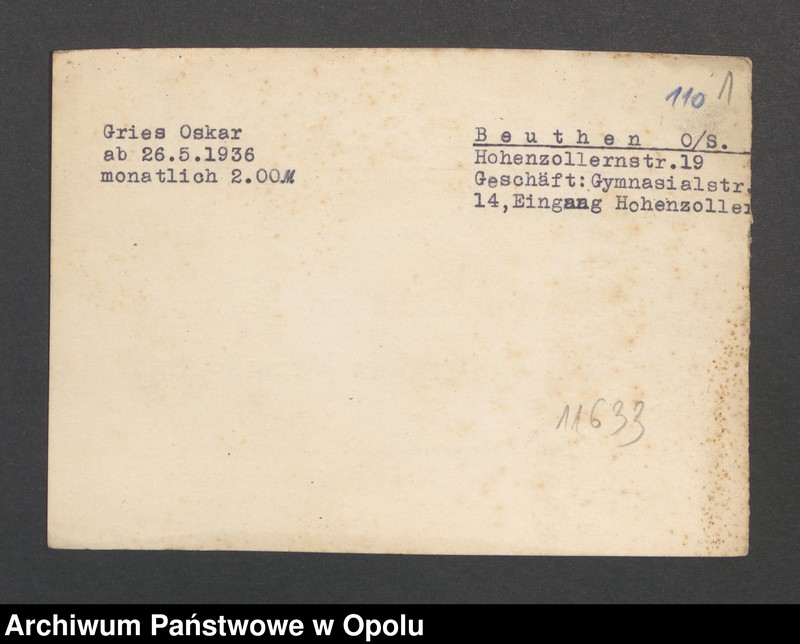 110 1
Gries Oskar
ab 26.5.1936
monatlich 2.00M
Beuthen O/S.
Hohenzollernstr.19
Geschäft:Gymnasialstr.
14,Eingang Hohenzoller
11633
Archiwum Państwowe w Opolu